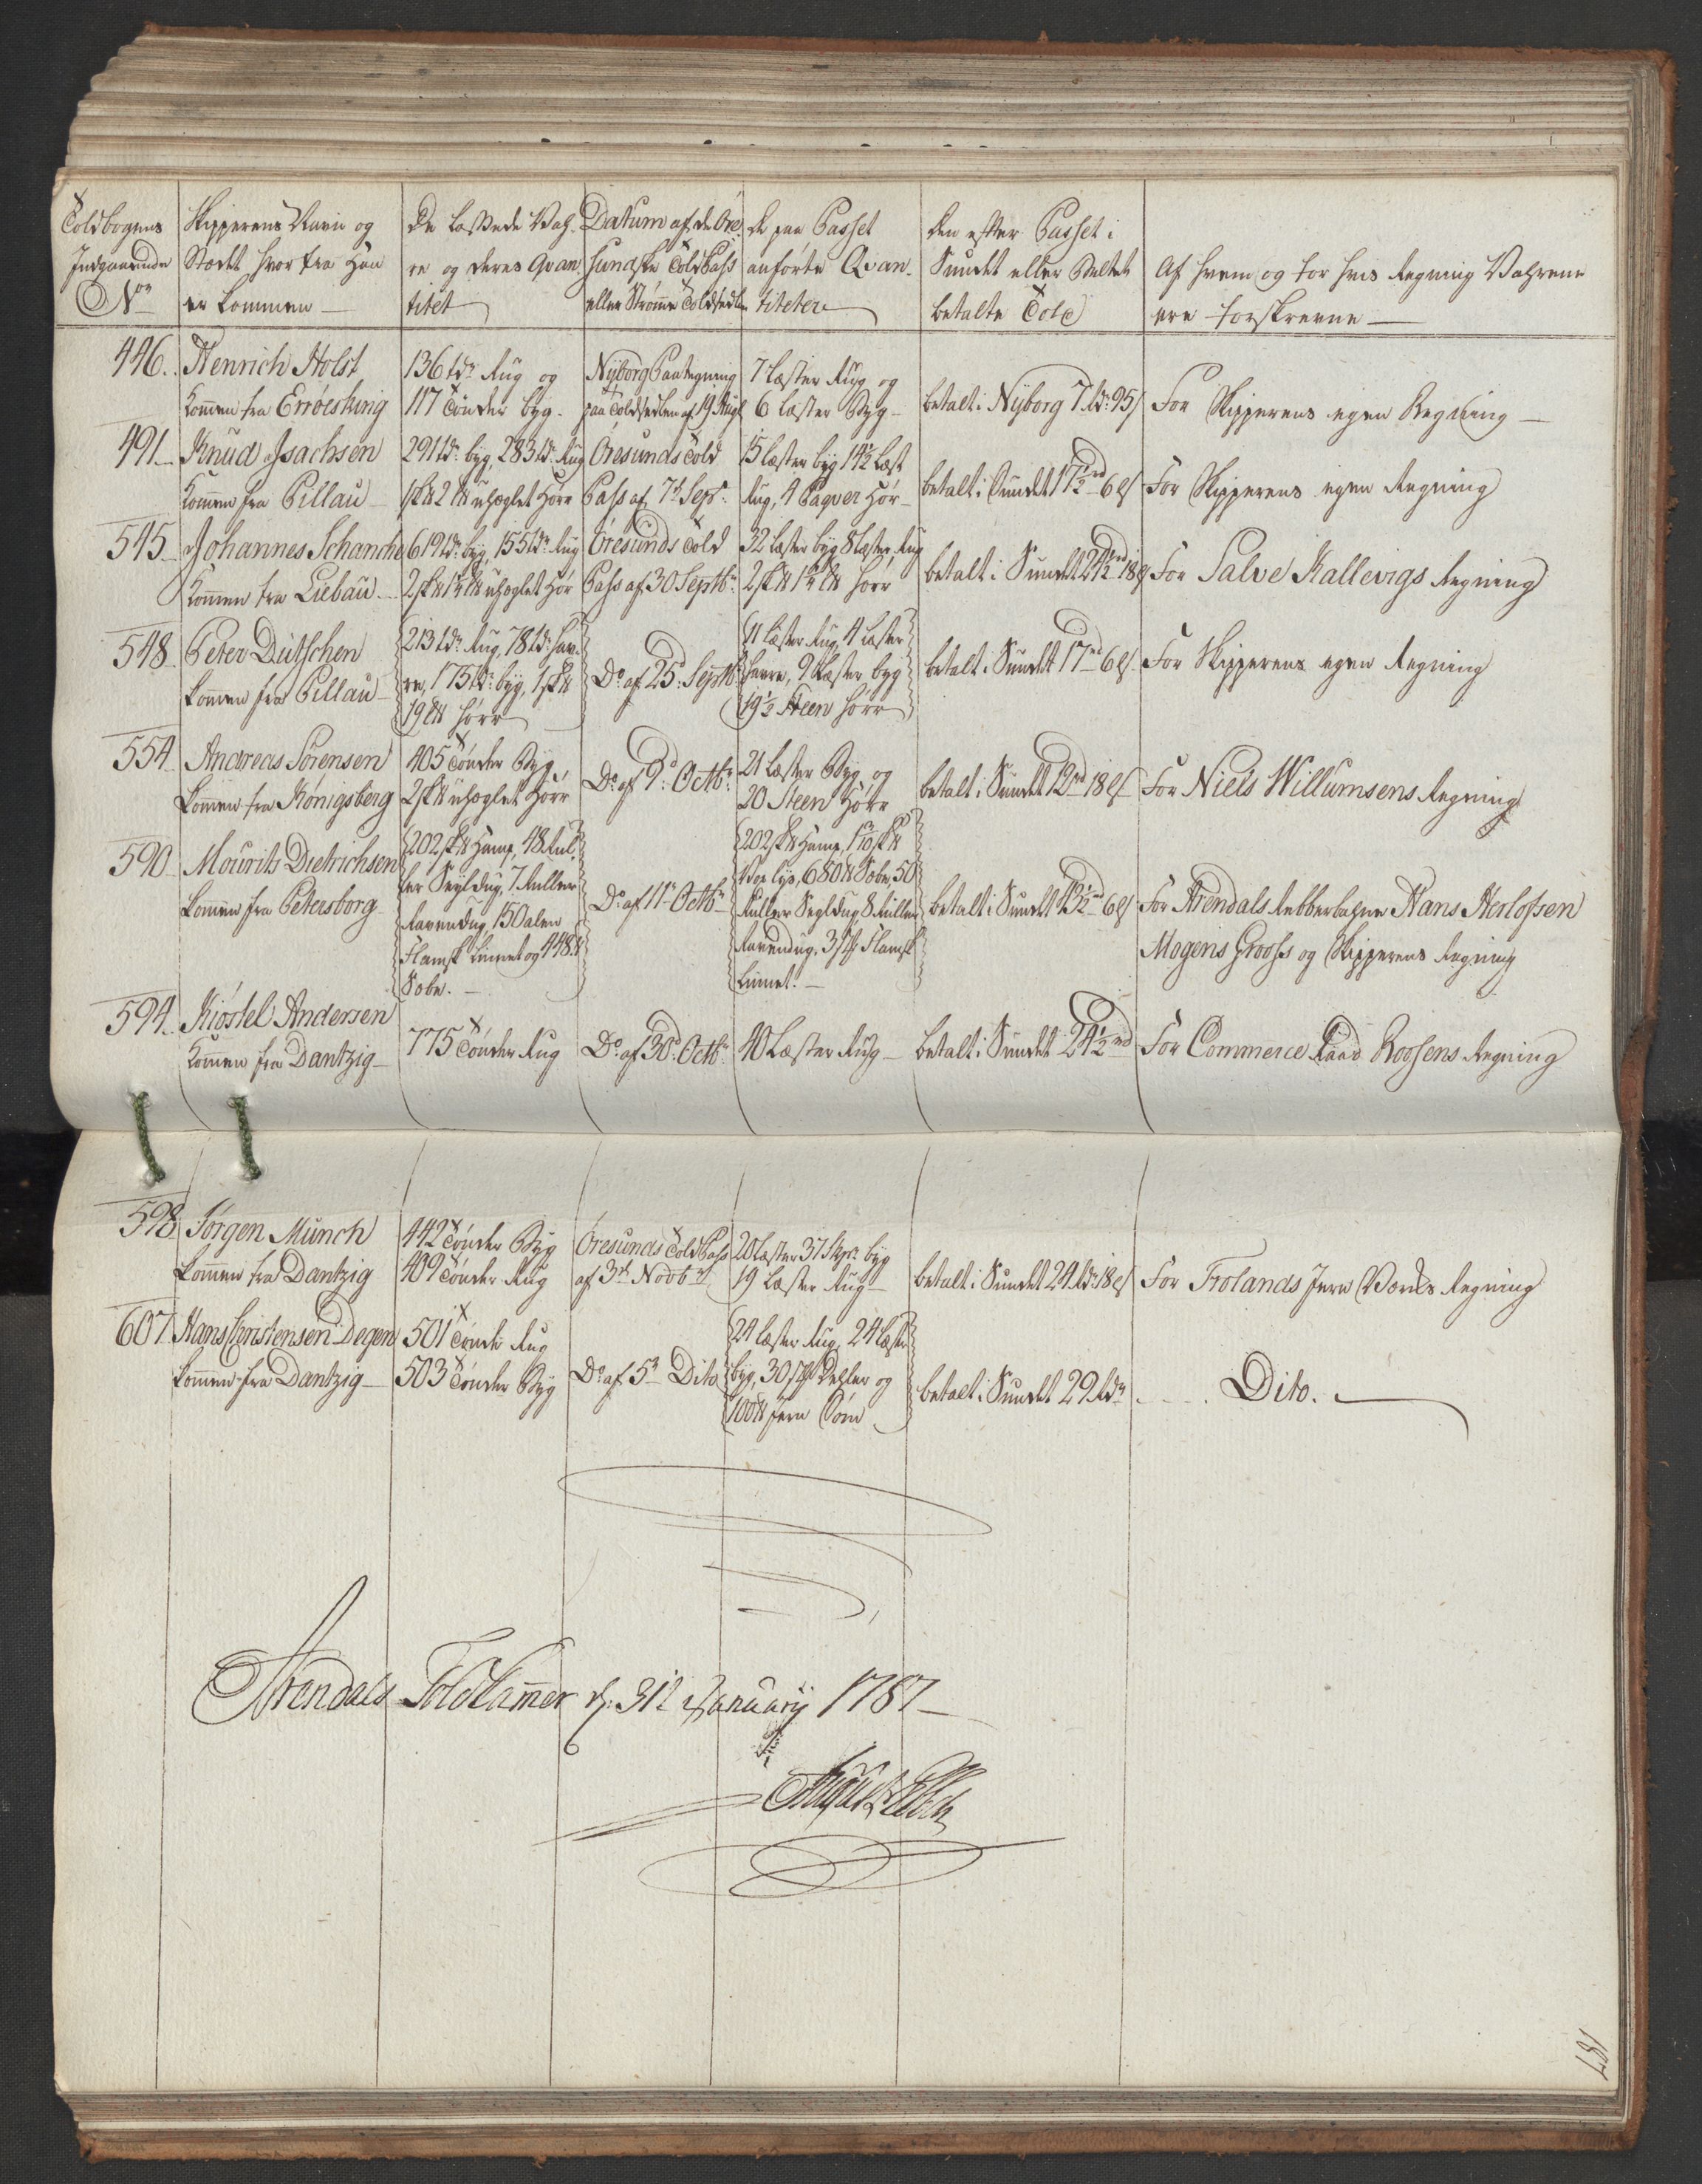 Toldbogens
Indgaaende
No
Skipperens Navn og
Stædet hvor fra Han
er kommen
De lossede Vah-
re og deres Qvan
titet
Datum af de Øre-
sundske Told Pass
eller Strømme Toldsedler
De paa Passet
anførte Qvan-
titeter
Den efter Passet i
Sundet eller Beltet
betalte Told
Af hvem og for hvis Regning Vahrene
ere forskrevne
446. Henrich Holst
kommen fra Erröeskiöng
136 tdr Rug og
117 Tönder byg.
Nyborg Paategning
paa Toldsedlen af 19 Augt
7 Læster Rug og
6 Læster Byg
betalt i Nyborg 7 rdr 95 s
For Skipperens egen Regning
491 Knud Isachsen
kommen fra Pillau
291 tdr byg, 283 tdr Rug
1 sk℔ 2 l℔ uheglet Hörr
Öresunds Told
Pass af 7d Septr
15 Læster byg 14½ Læst
Rug, 4 Paqver Hör
betalt i Sundet 17½ rd 6 s
For Skipperens egen Regning
545 Johannes Schanche
kommen fra Liebau
619 tdr byg, 155 tdr Rug
2 sk℔ 1½ l℔ uheglet Hör
Öresunds Told
Pass af 30 Septbr
32 Læster byg 8 Læster Rug
2 sk℔ 1½ l℔ hörr
betalt i Sundet 24½ rd 18 s
For Salve Kallevigs Regning
548 Peter Dütschen
kommen fra Pillau
213 tdr Rug, 78 tdr hav-
re, 175 tdr byg, 1 sk℔
19 l℔ hörr
Do af 25 Septbr
11 Læster Rug, 4 Læster
havre, 9 Læster byg
19½ Steen hörr
betalt i Sundet 17 rd 6 s
For Skipperens egen Regning
554 Andreas Sörensen
kommen fra Königsberg
405 Tönder Byg
2 sk℔ uheglet Hörr
Do af 9d Octbr
21 Læster Byg og
20 Steen Hörr
betalt i Sundet 12 rd 18 s
For Niels Willumsens Regning
590 Mourits Dietrichsen
kommen fra Petersborg
202 sk℔ Hamp, 48 Rul-
ler Seyldug, 7 Ruller
Ravendug, 150 alen
Flamsk Linnet og 448 ℔
Sæbe.
Do af 11 Octbr
202 sk℔ Hamp, 1 3/10 sk℔
lys, 680 ℔ Sæbe, 50
Ruller Segldug 8 Ruller
Ravendug, 3 st Flamsk
Linnet.
betalt i Sundet 43½ rd 6 s
For Arendals Rebberbahne Hans Herlofsen
Mogens Grooss og Skipperens Regning
594 Kiöstel Andersen
kommen fra Dantzig
775 Tönder Rug
Do af 30d Octbr
40 Læster Rug
betalt i Sundet 24½ rd
For Commerce Raad Roosens Regning
598 Jörgen Munch
kommen fra Dantzig
442 Tönder Byg
409 Tönder Rug
Öresunds Told Pass
af 3d Novbr
20 Læster 37 Skpr byg
19 Læster Rug
betalt i Sundet 24 rdr 18 s
For Frolands Jern Værks Regning
607 Hans Christensen Degen
kommen fra Dantzig
501 Tönder Rug
503 Tönder Byg
Do af 5 Dito
24 Læster Rug, 24 Læster
byg, 30 st Dehler og
100 ℔ Jern Söm
betalt i Sundet 29 rdr
Dito.
Arendals Toldkammer d: 31t January 1787
187